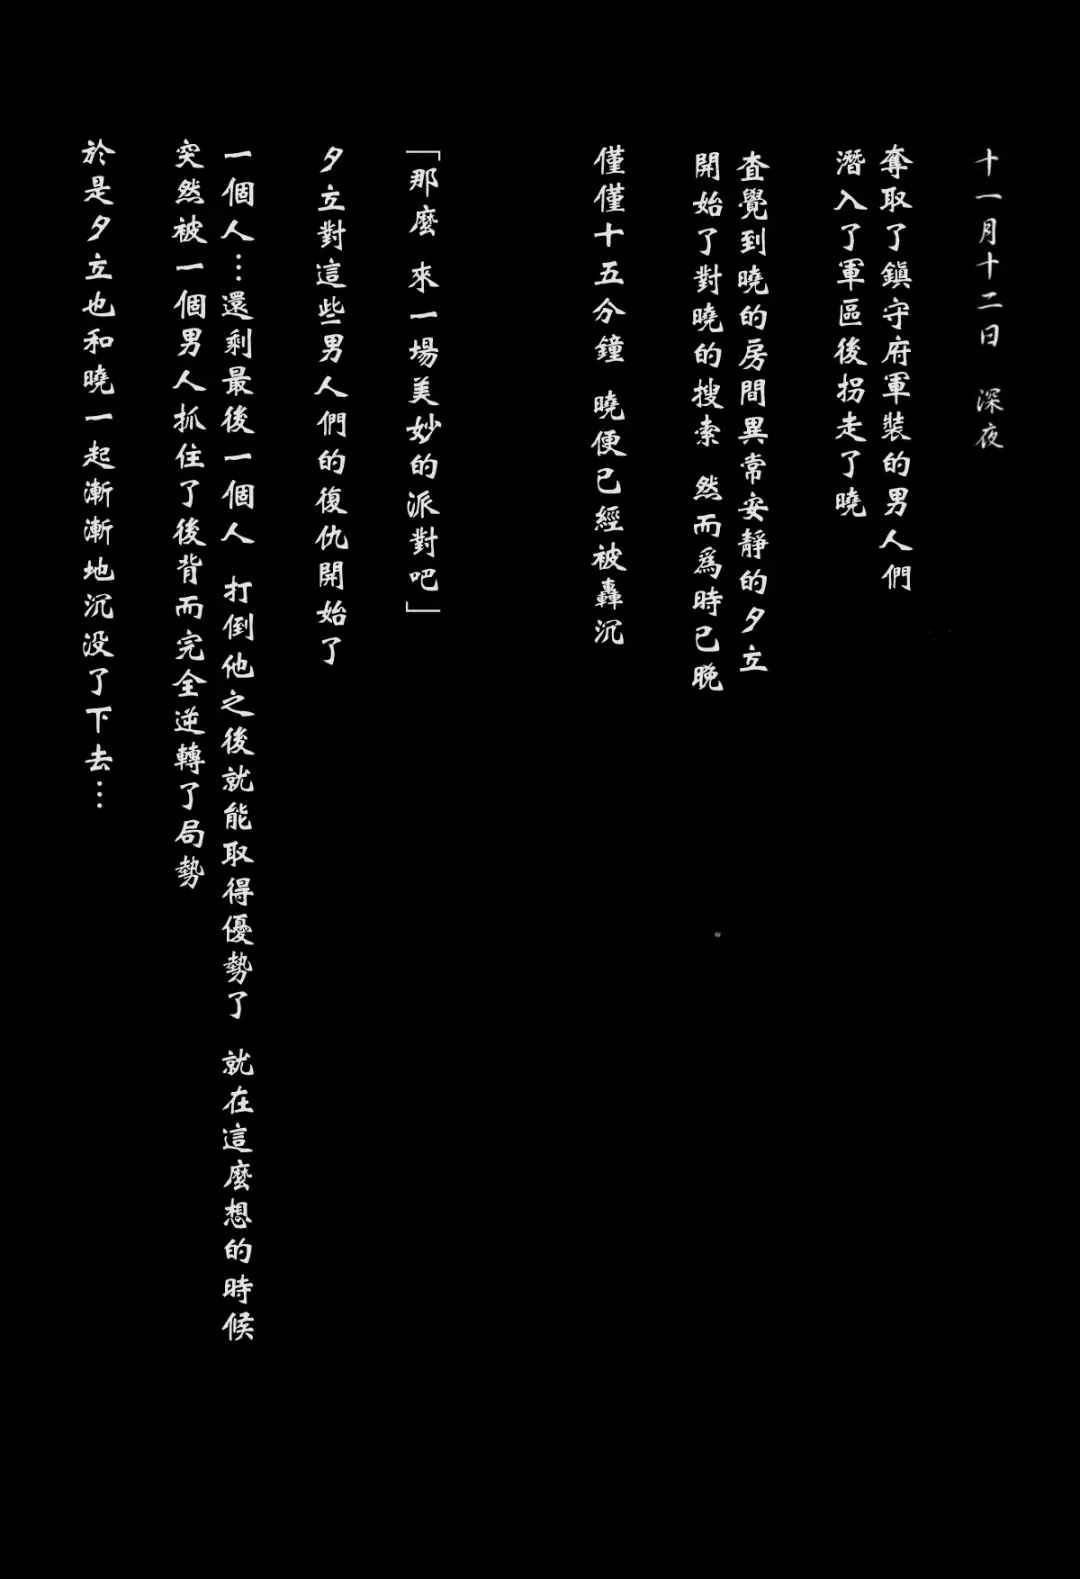 十一月十二日　深夜
奪取了鎮守府軍裝的男人們
潛入了軍區後拐走了曉
查覺到曉的房間異常安靜的夕立
開始了對曉的搜索 然而爲時已晚
僅僅十五分鐘 曉便已經被轟沉
「那麼 來一場美妙的派對吧」
夕立對這些男人們的復仇開始了
一個人…還剩最後一個人 打倒他之後就能取得優勢了 就在這麼想的時候
突然被一個男人抓住了後背而完全逆轉了局勢
於是夕立也和曉一起漸漸地沉没了下去…